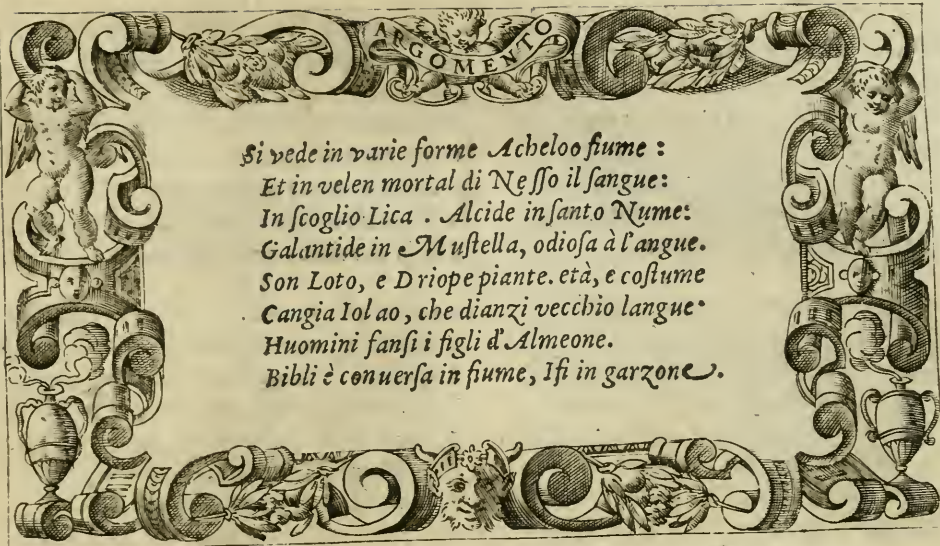 ARGOMENTO
Si vede in varie forme Acheloo fiume :
Et in velen mortal di Neſſo il ſangue:
In ſcoglio Lica . Alcide in ſanto Nume:
Galantide in Muſtella, odioſa à l'angue.
Son Loto, e Driope piante. età, e coſtume
Cangia Iolao, che dianzi vecchio langue.
Huomini fanſi i figli d'Almeone.
Bibli è conuerſa in fiume, Iſi in garzone.